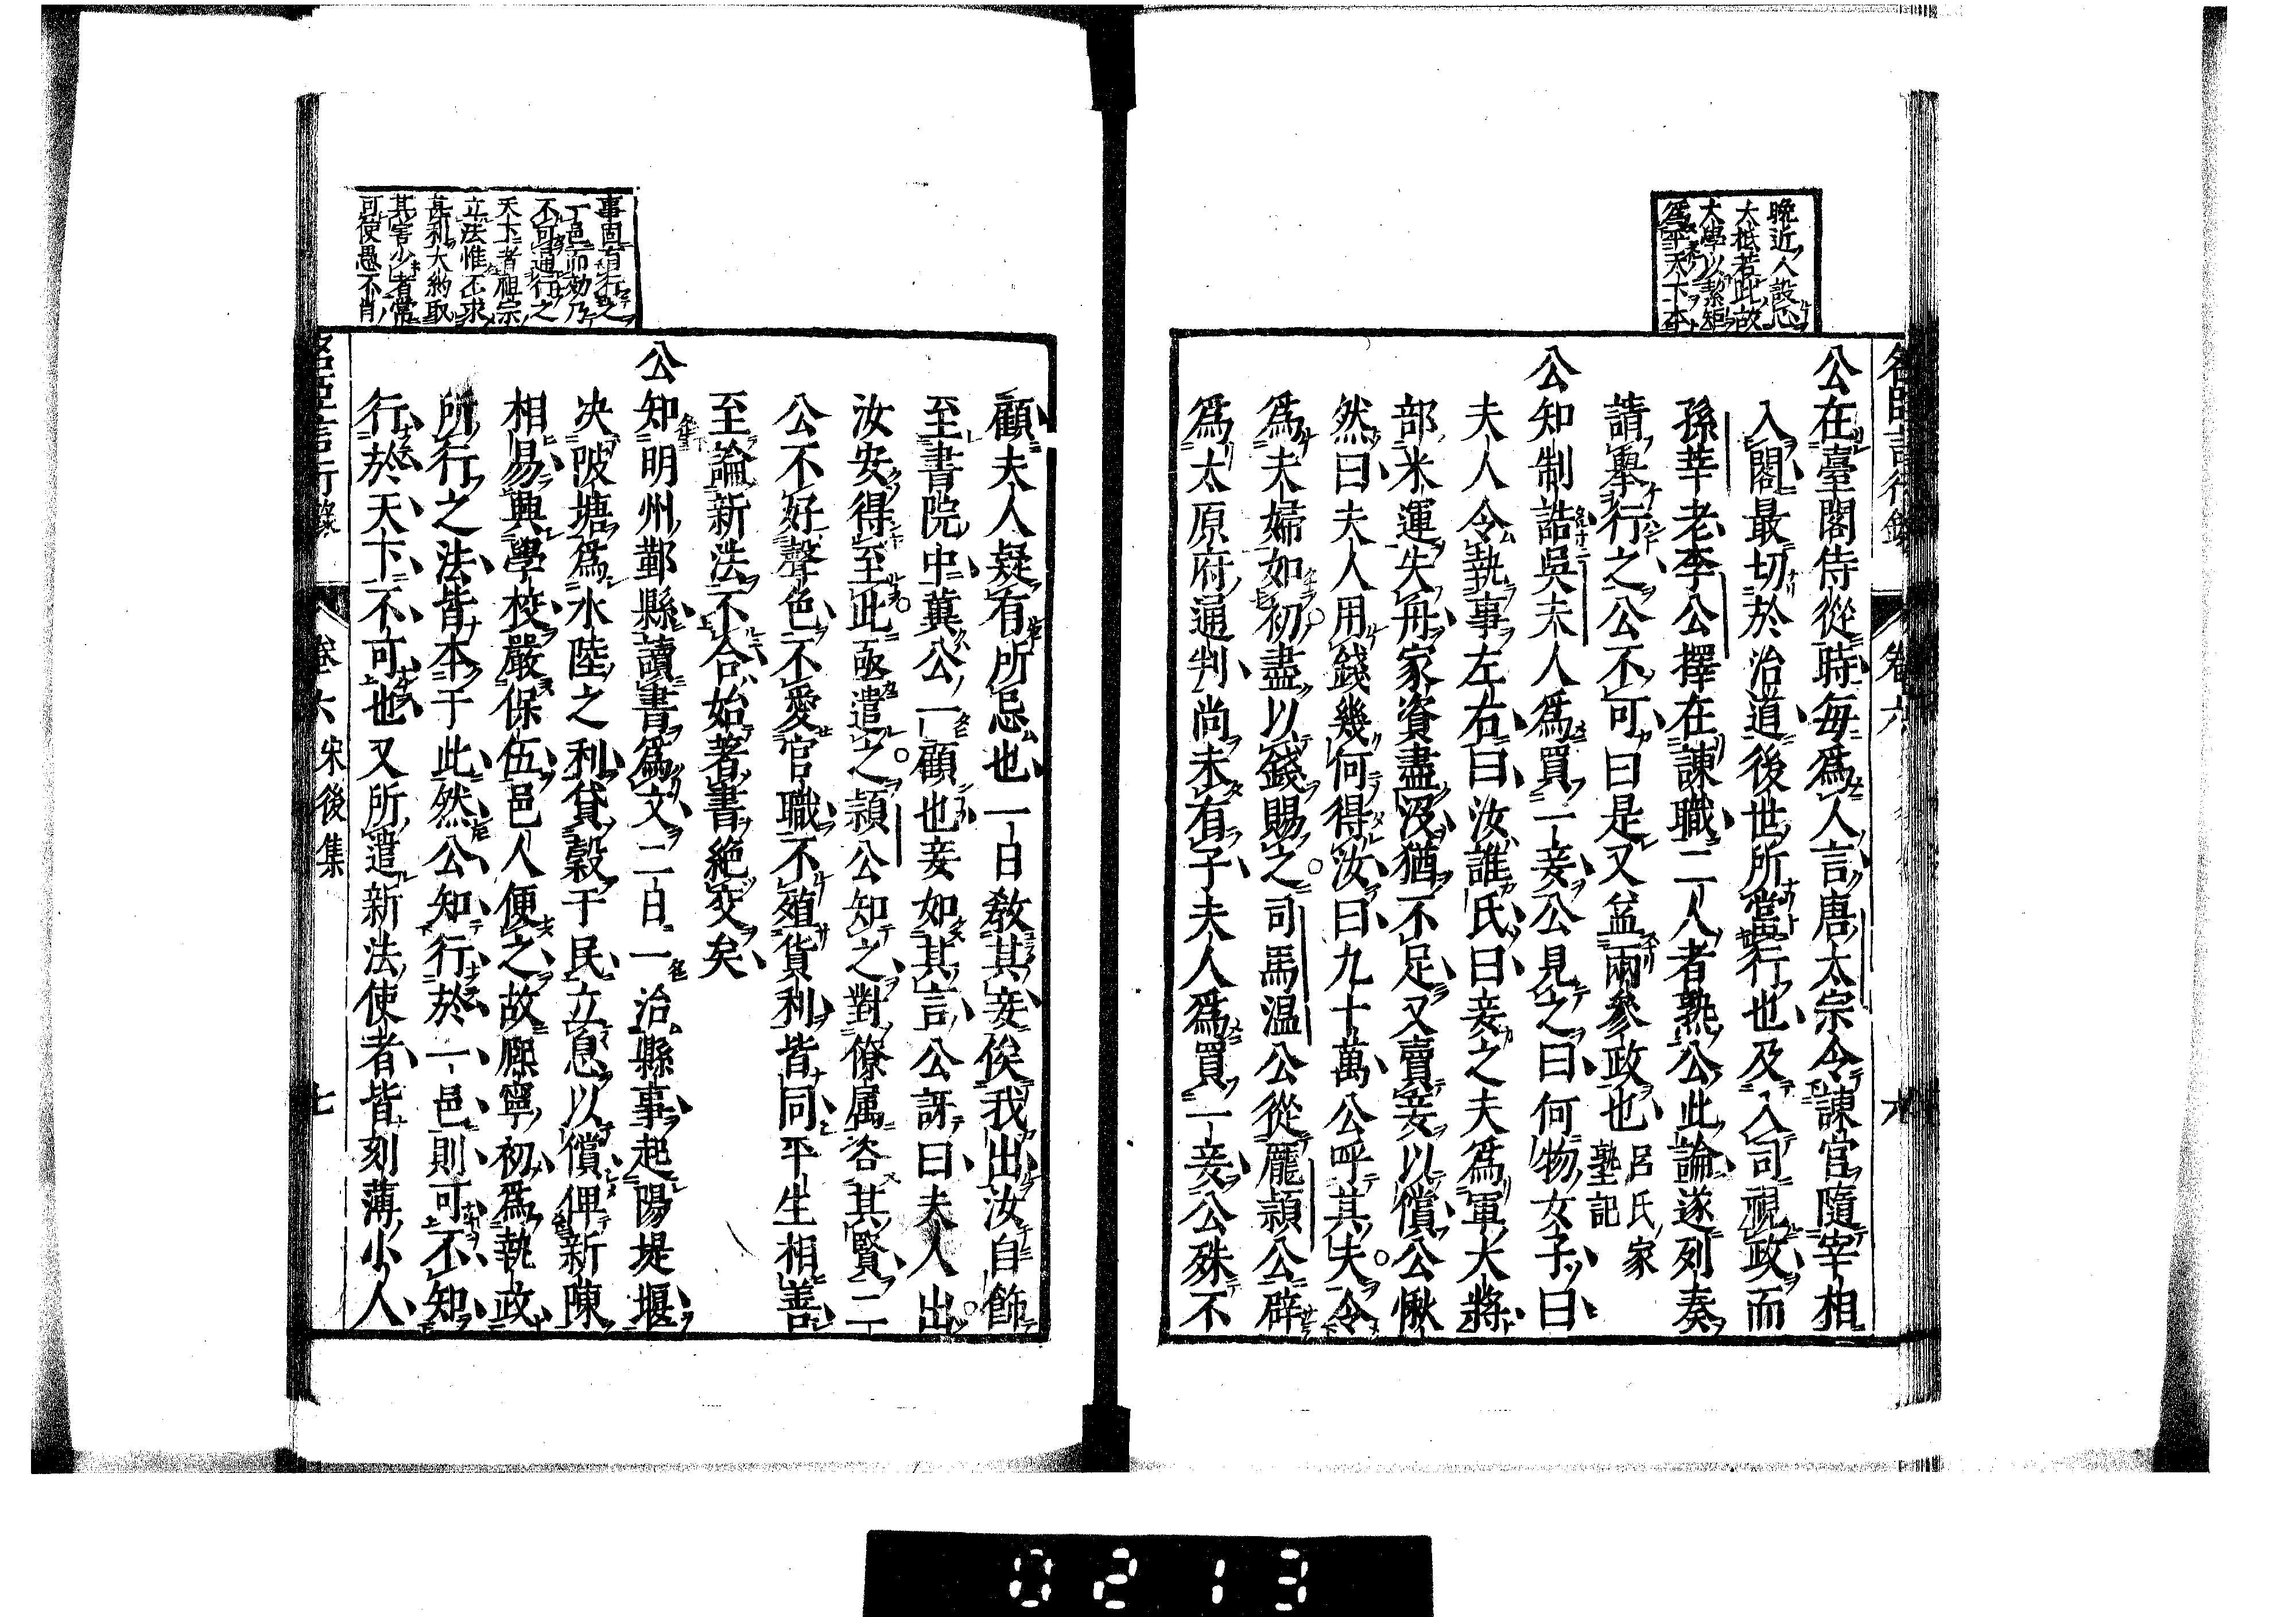 晩近人設心
大抵若此故
大學以絜矩
爲平天下本
公在臺閣侍從時毎爲人言唐太宗令諌官隨宰相
入閣最切於治道後世所當行也及入司視政而
孫莘老李公擇在諌職二人者熟公此論遂列奏
請舉行之公不可曰是又益兩參政也
呂氏家
塾記
公知制誥吳夫人爲買一妾公見之曰何物女子曰
夫人令執事左右曰汝誰氏曰妾之夫爲軍大將
部米運失舟家資盡沒猶不足又賣妾以償公愀
然曰夫人用錢幾何得汝曰九十萬公呼其夫令
爲夫婦如初盡以錢賜之司馬温公從龐頴公辟
爲太原府通判尚未有子夫人爲買一妾公殊不
名臣言行錄
卷六
六
事固有行之
一邑而効乃
不可通行之
天下者祖宗
立法惟不求
甚利大約取
其害少者常
可使愚不肖
顧夫人疑有所忌也一日敎其妾俟我出汝自飾
至書院中冀公一顧也妾如其言公訝曰夫人出
汝安得至此亟遣之頴公知之對僚属咨其賢二
公不好聲色不愛官職不殖貨利皆同平生相善
至論新法不合始著書絶交矣
公知明州鄞縣讀書爲文二日一治縣事起陽堤堰
决陂塘爲水陸之利貸穀于民立息以償俾新陳
相易興學校嚴保伍邑人便之故熈寧初爲執政
所行之法皆本于此然公知行於一邑則可不知
行於天下不可也又所遣新法使者皆刻薄小人
名臣言行錄
卷六
宋後集
七
0213